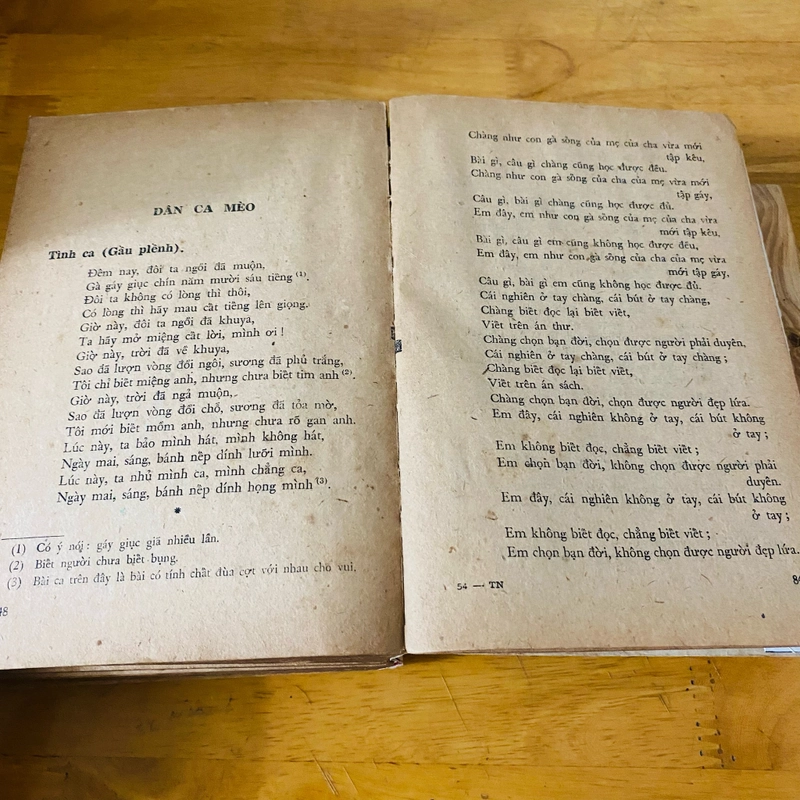 DÂN CA MÈO
Tình ca (Gầu plềnh).
Đêm nay, đôi ta ngồi đã muộn,
Gà gáy giục chín năm mười sáu tiếng (1).
Đôi ta không có lòng thì thôi,
Có lòng thì hãy mau cất tiếng lên giọng.
Giờ này, đôi ta ngồi đã khuya,
Ta hãy mở miệng cất lời, mình ơi !
Giờ này, trời đã về khuya,
Sao đã lượn vòng đổi ngôi, sương đã phủ trắng,
Tôi chỉ biết miệng anh, nhưng chưa biết tim anh (2).
Giờ này, trời đã ngả muộn,
Sao đã lượn vòng đổi chỗ, sương đã tỏa mờ,
Tôi mới biết mồm anh, nhưng chưa rõ gan anh.
Lúc này, ta bảo mình hát, mình không hát,
Ngày mai, sáng, bánh nếp dính lưỡi mình.
Lúc này, ta nhủ mình ca, mình chẳng ca,
Ngày mai, sáng, bánh nếp dính họng mình (3).
*
(1) Có ý nói : gáy giục giã nhiều lần.
(2) Biết người chưa biết bụng.
(3) Bài ca trên đây là bài có tính chất đùa cợt với nhau cho vui,
48
Chàng như con gà sống của mẹ của cha vừa mới
tập kêu,
Bài gì, câu gì chàng cũng học được đều.
Chàng như con gà sống của cha của mẹ vừa mới
tập gáy,
Câu gì, bài gì chàng cũng học được đủ.
Em đây, em như con gà sống của mẹ của cha vừa
mới tập kêu,
Bài gì, câu gì em cũng không học được đều,
Em đây, em như con gà sống của cha của mẹ vừa
mới tập gáy,
Câu gì, bài gì em cũng không học được đủ.
Cái nghiên ở tay chàng, cái bút ở tay chàng,
Chàng biết đọc lại biết viết,
Viết trên án thư.
Chàng chọn bạn đời, chọn được người phải duyên,
Cái nghiên ở tay chàng, cái bút ở tay chàng ;
Chàng biết đọc lại biết viết,
Viết trên án sách.
Chàng chọn bạn đời, chọn được người đẹp lứa.
Em đây, cái nghiên không ở tay, cái bút không
ở tay ;
Em không biết đọc, chẳng biết viết ;
Em chọn bạn đời, không chọn được người phải
duyên.
Em đây, cái nghiên không ở tay, cái bút không
ở tay ;
Em không biết đọc, chẳng biết viết ;
Em chọn bạn đời, không chọn được người đẹp lứa.
54 — TN